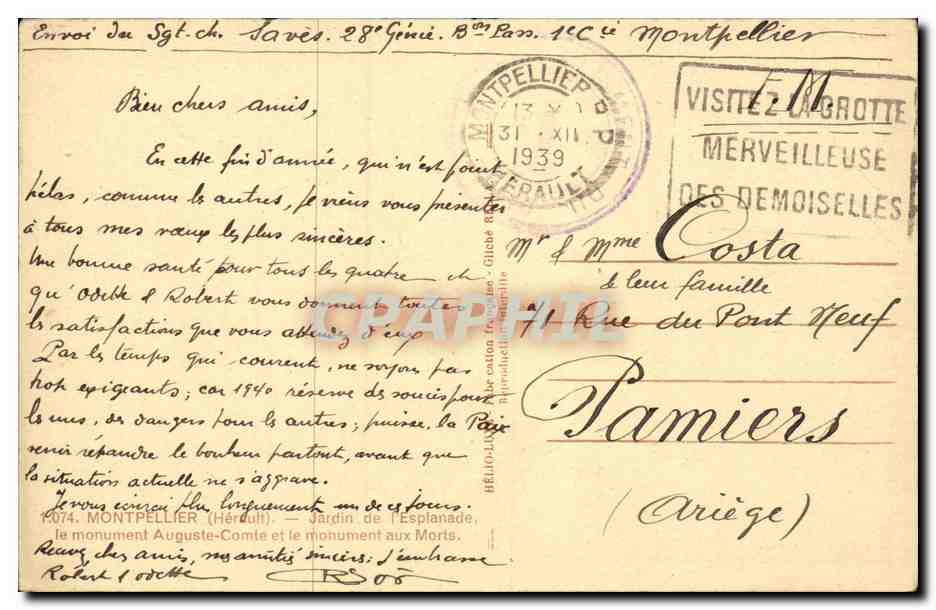 Envoi du Sgt-ch. Savès. 28e Génie. Bon Pass. 1e Cie Montpellier
F.M.
MONTPELLIER R.P.
13 X
31 XII
1939
HÉRAULT
VISITEZ LA GROTTE
MERVEILLEUSE
DES DEMOISELLES
Bien chers amis,
En cette fin d'année, qui n'est point
hélas, comme les autres, je viens vous présenter
à tous mes vœux les plus sincères.
Une bonne santé pour tous les quatre et
qu'Odette & Robert vous donnent toutes
les satisfactions que vous attendez d'eux
Par les temps qui courent, ne soyons pas
trop exigeants; car 1940 réserve des soucis pour
les uns, des dangers pour les autres; puisse la Paix
venir répandre le bonheur partout, avant que
la situation actuelle ne s'aggrave.
Je vous écrirai plus longuement un de ces jours.
1.074. MONTPELLIER (Hérault). — Jardin de l'Esplanade,
le monument Auguste-Comte et le monument aux Morts.
Recevez, chers amis, mes amitiés sincères; j'embrasse
Robert & Odette
HÉLIO-LUX
Fabrication française - Cliché
Reproduction interdite
CPAPHIL
Mr & Mme Costa
& leur famille
71 Rue du Pont Neuf
Pamiers
(Ariège)